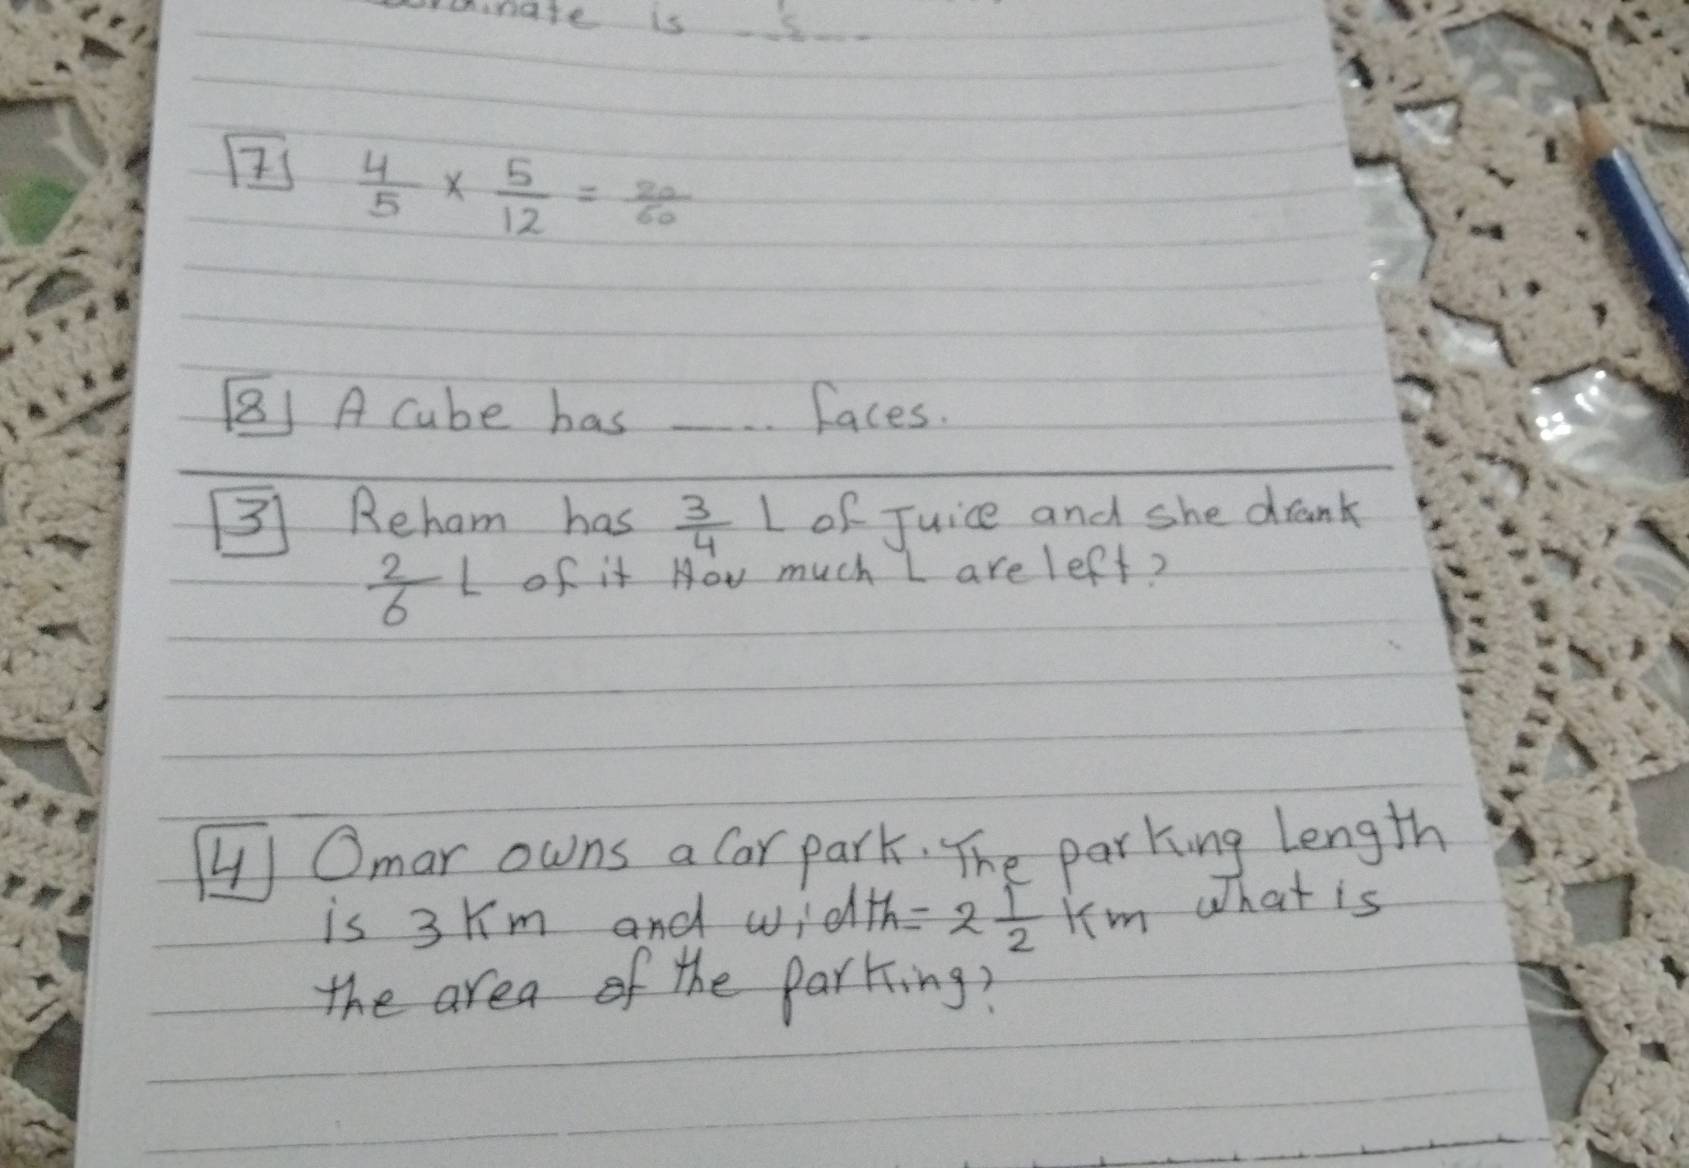 is
[7] 4/5 × 5/12 = 20/60
[8] A cube has ...... faces.
[3] Reham has 3/4 L of Juice and she drank
2/6 L of it How much L are left?
[4] Omar owns a Car park. The parking Length
is 3 Km and width = 2 1/2 Km what is
the area of the parking?